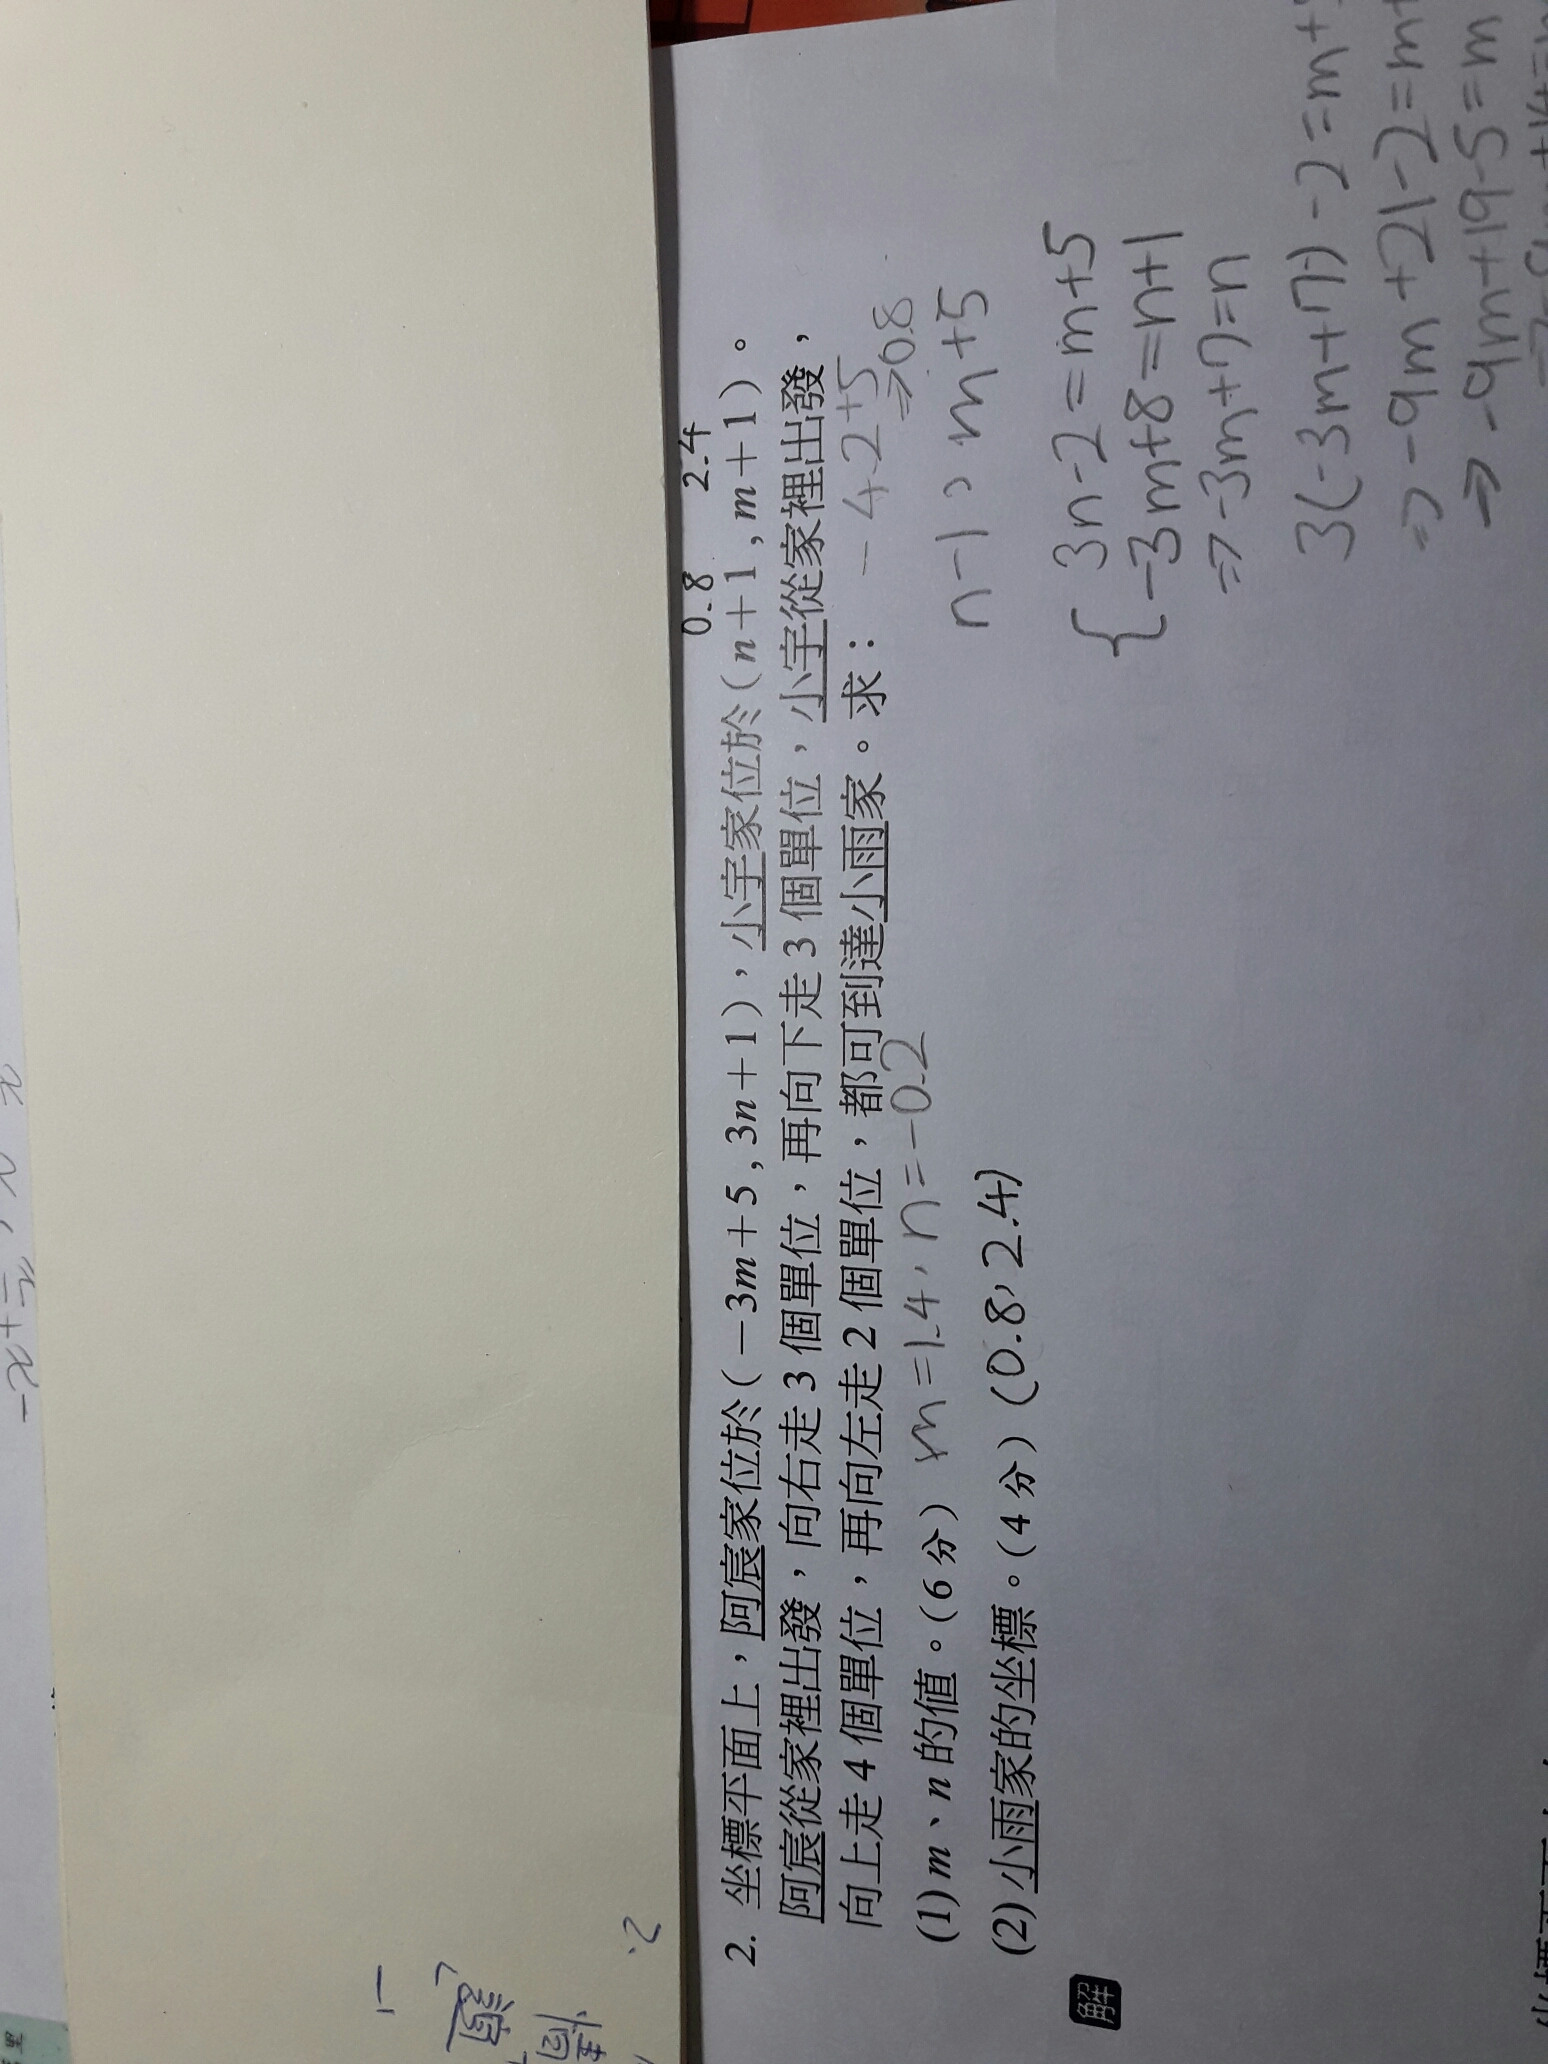 2. 坐標平面上，阿宸家位於(－3m＋5,3n＋1)，小宇家位於(n＋1,m＋1)。
0.8 2.4
阿宸從家裡出發，向右走3個單位，再向下走3個單位，小宇從家裡出發，
向上走4個單位，再向左走2個單位，都可到達小雨家。求：
-4.2+5
⇒0.8
(1)m、n的值。(6分) m=1.4, n=-0.2
n-1, m+5
(2)小雨家的坐標。(4分) (0.8, 2.4)
解
{3n-2=m+5
-3m+8=n+1
⇒-3m+7=n
3(-3m+7)-2=m+
⇒-9m+21-2=m+
⇒-9m+19-5=m